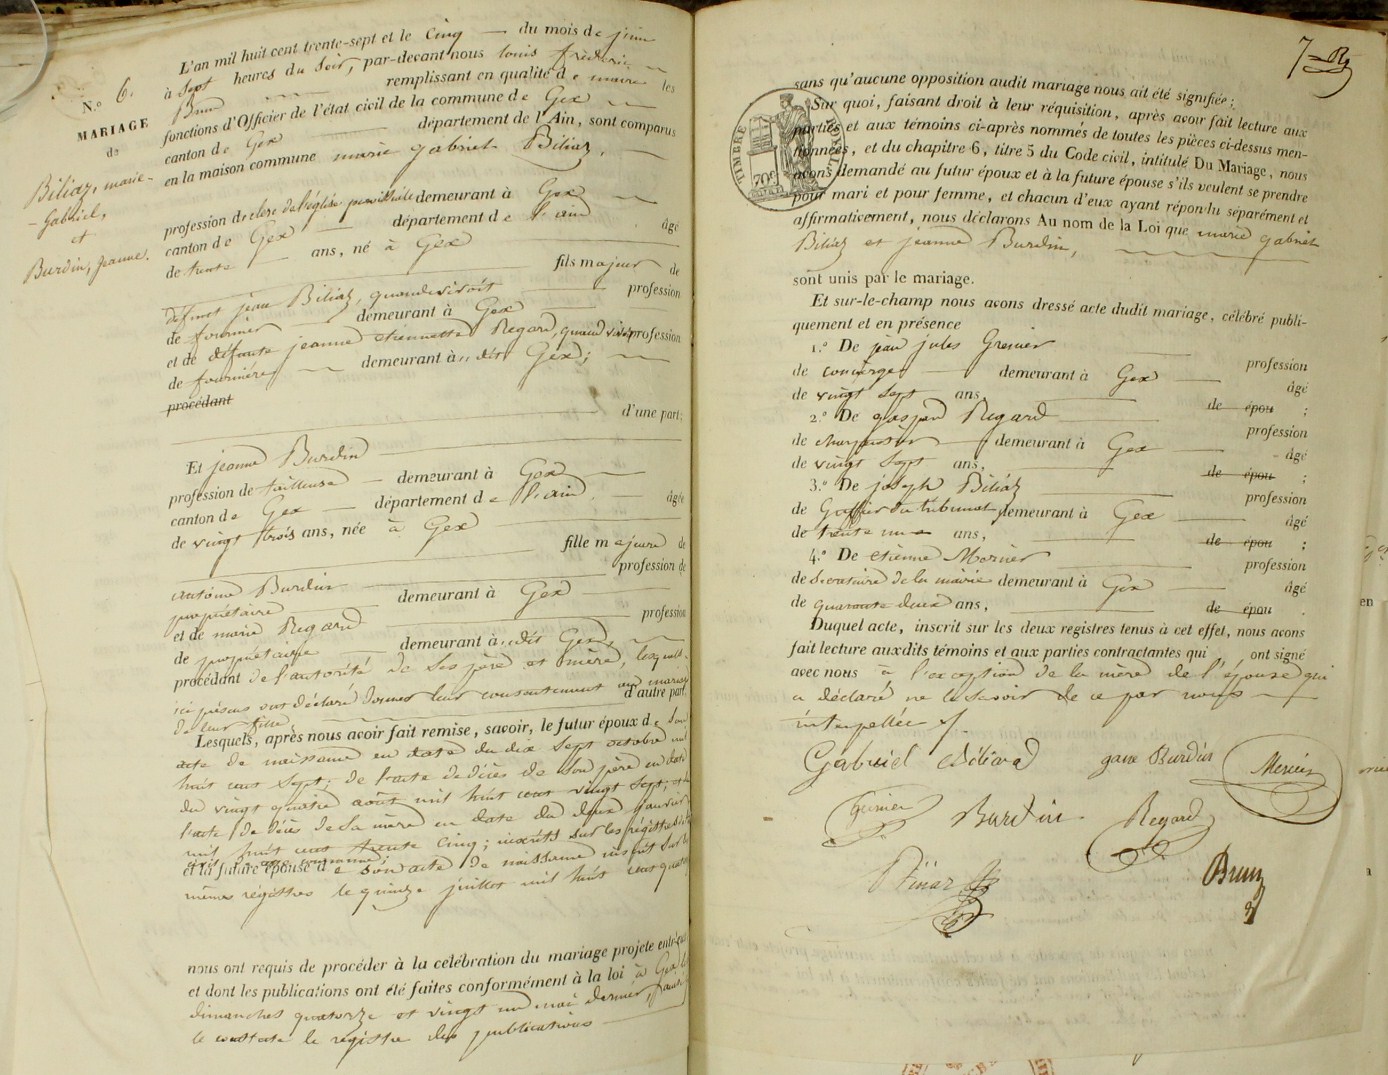 N.º 6.
MARIAGE
de
Biliaz, marie-
-Gabriel,
et
Burdin, Jeanne.
L'an mil huit cent trente-sept et le Cinq du mois de juin
à sept heures du soir, par-devant nous louis frédéric
Brun remplissant en qualité de maire les
fonctions d'Officier de l'état civil de la commune de Gex
canton de Gex département de l'Ain, sont comparus
en la maison commune marie gabriel Biliaz,
profession de clerc de l'église paroissiale demeurant à Gex
canton de Gex département de l'ain âgé
de trente ans, né à Gex
fils majeur de
défunt jean Biliaz, quand vivoit profession
de fournier demeurant à Gex
et de défunte jeanne etiennette Regard, quand vivoit profession
de fournière demeurant à dit Gex;
procédant
d'une part;
Et jeanne Burdin
profession de tailleuse demeurant à Gex
canton de Gex département de l'ain âgée
de vingt trois ans, née à Gex
fille majeure de
antoine Burdin profession de
propriétaire demeurant à Gex
et de marie Regard profession
de propriétaire demeurant à dit Gex,
procédant de l'autorité de ses père et mère, lesquels
ici présens ont déclaré donner leur consentement au mariage
de leur fille, d'autre part.
Lesquels, après nous avoir fait remise, savoir, le futur époux de son
acte de naissance en date du dix sept octobre mil
huit cent sept; de l'acte de décès de son père en date
du vingt quatre août mil huit cent vingt sept; et de
l'acte de décès de sa mère en date du deux janvier
mil huit cent trente cinq; inscrits sur les régistres
et la future épouse de son acte de naissance inscrit sur les
mêmes régistres le quinze juillet mil huit cent quatorze
nous ont requis de procéder à la célébration du mariage projeté entr'eux
et dont les publications ont été faites conformément à la loi à Gex les
dimanches quatorze et vingt un mai dernier,
le constate le régistre des publications
7
sans qu'aucune opposition audit mariage nous ait été signifiée;
Sur quoi, faisant droit à leur réquisition, après avoir fait lecture aux
parties et aux témoins ci-après nommés de toutes les pièces ci-dessus men-
tionnées, et du chapitre 6, titre 5 du Code civil, intitulé Du Mariage, nous
avons demandé au futur époux et à la future épouse s'ils veulent se prendre
pour mari et pour femme, et chacun d'eux ayant répondu séparément et
affirmativement, nous déclarons Au nom de la Loi que marie gabriel
Biliaz et jeanne Burdin,
sont unis par le mariage.
Et sur-le-champ nous avons dressé acte dudit mariage, célébré publi-
quement et en présence
1.º De jean jules Grenier profession
de concierge demeurant à Gex âgé
de vingt sept ans, de épou ;
2.º De gaspard Regard profession
de charpentier demeurant à Gex âgé
de vingt sept ans, de épou ;
3.º De joseph Biliaz profession
de Greffier du tribunal, demeurant à Gex âgé
de trente un ans, de épou ;
4.º De etienne Mernier profession
de Secretaire de la mairie demeurant à Gex âgé
de quarante deux ans, de épou .
Duquel acte, inscrit sur les deux registres tenus à cet effet, nous avons
fait lecture auxdits témoins et aux parties contractantes qui ont signé
avec nous à l'exception de la mère de l'épouse qui
a déclaré ne le savoir de ce par nous
interpellée
TIMBRE ROYAL
70c
Gabriel Biliard
Burdin
Grenier
Burdin
Regard
Brun